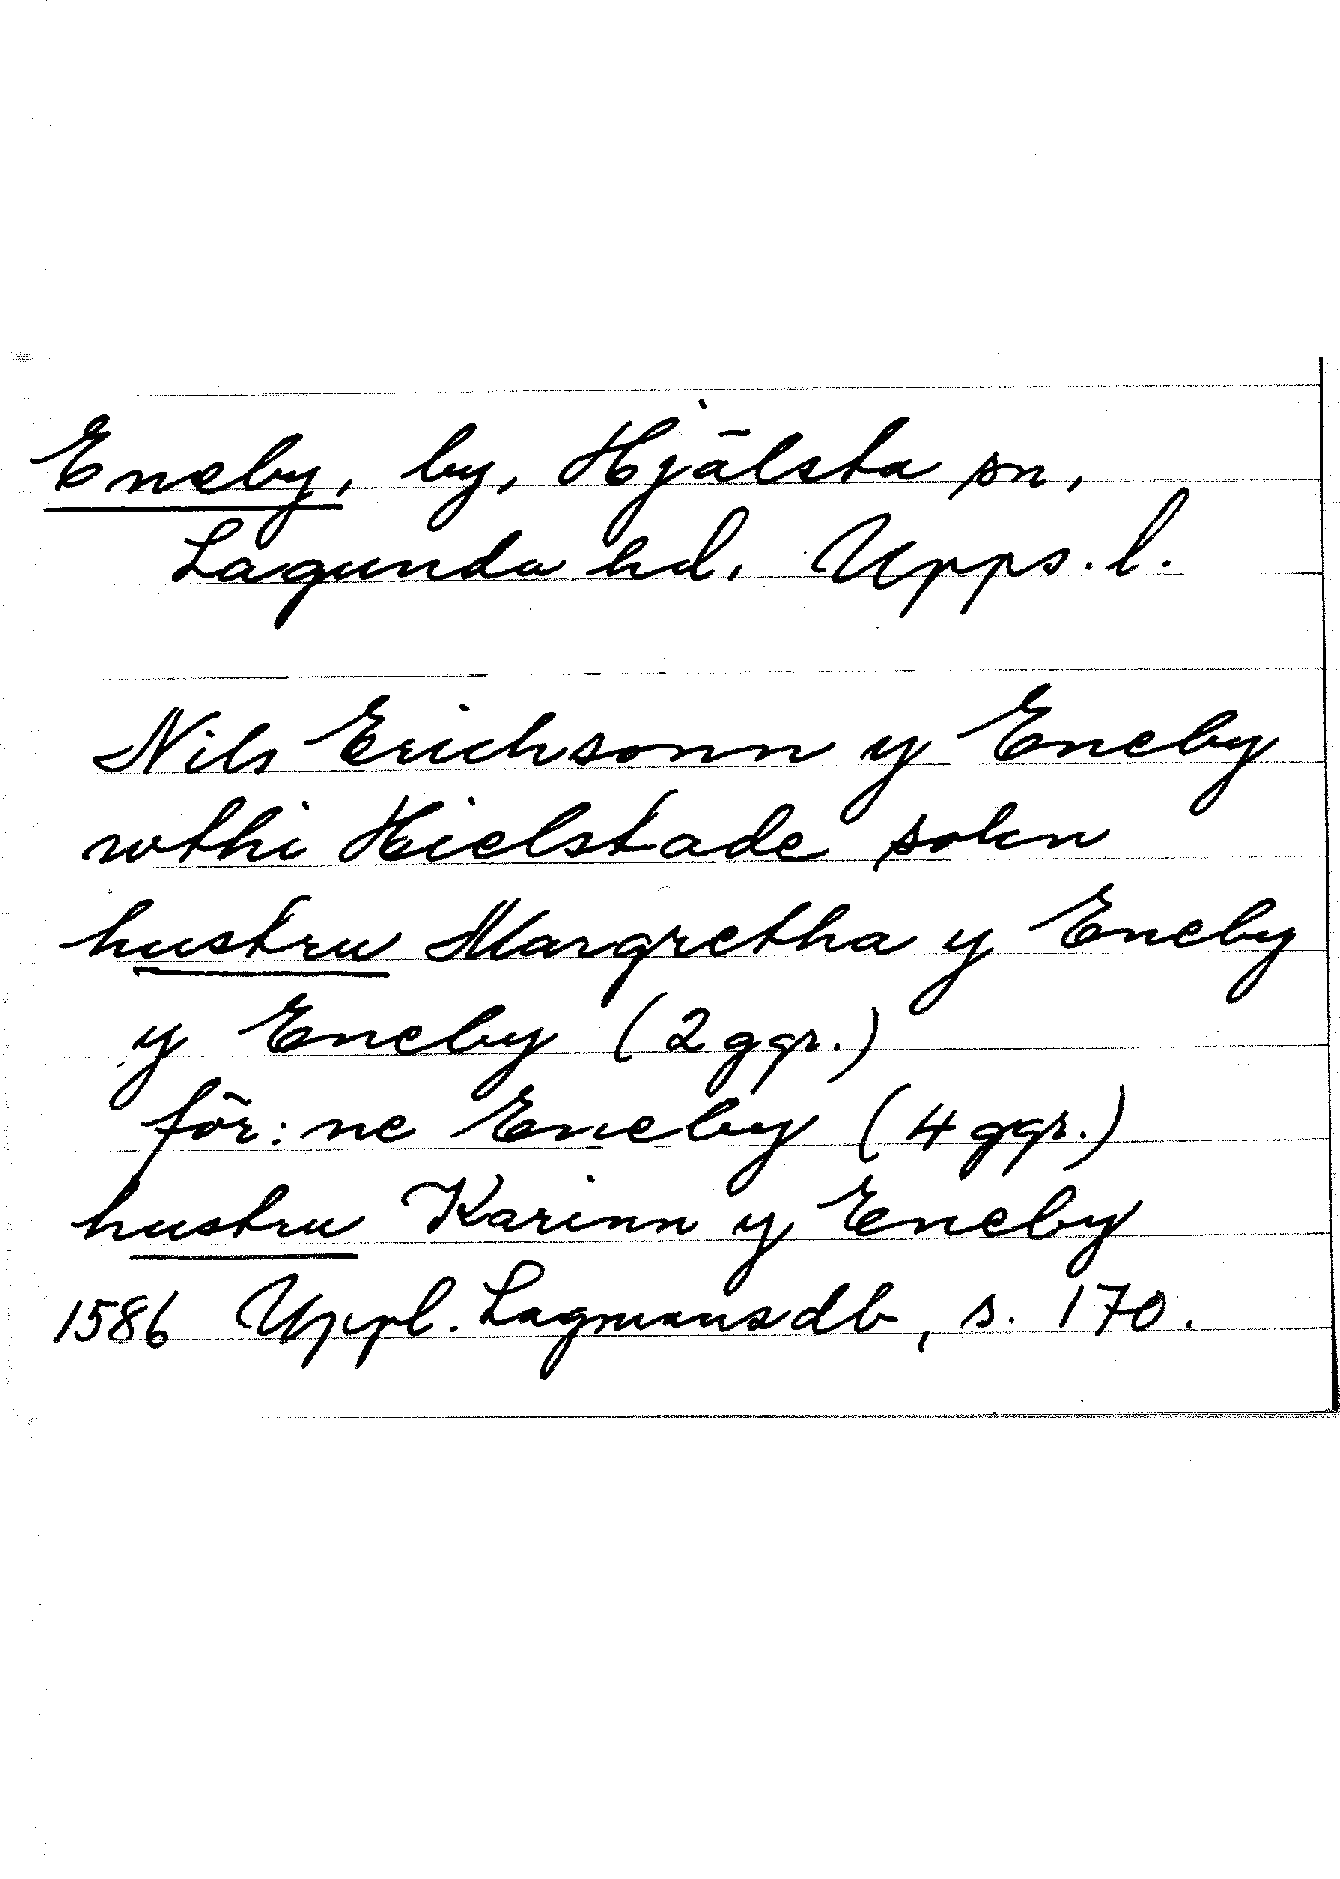 Eneby, by, Hjälsta sn,
Lagunda hd. Upps. l.
Nils Erichsonn y Eneby
wthi Hielstade sokn
hustru Margretha y Eneby
y Eneby (2 ggr.)
för:ne Eneby (4 ggr.)
hustru Karinn y Eneby
1586 Uppl. Lagmansdb, s. 170.